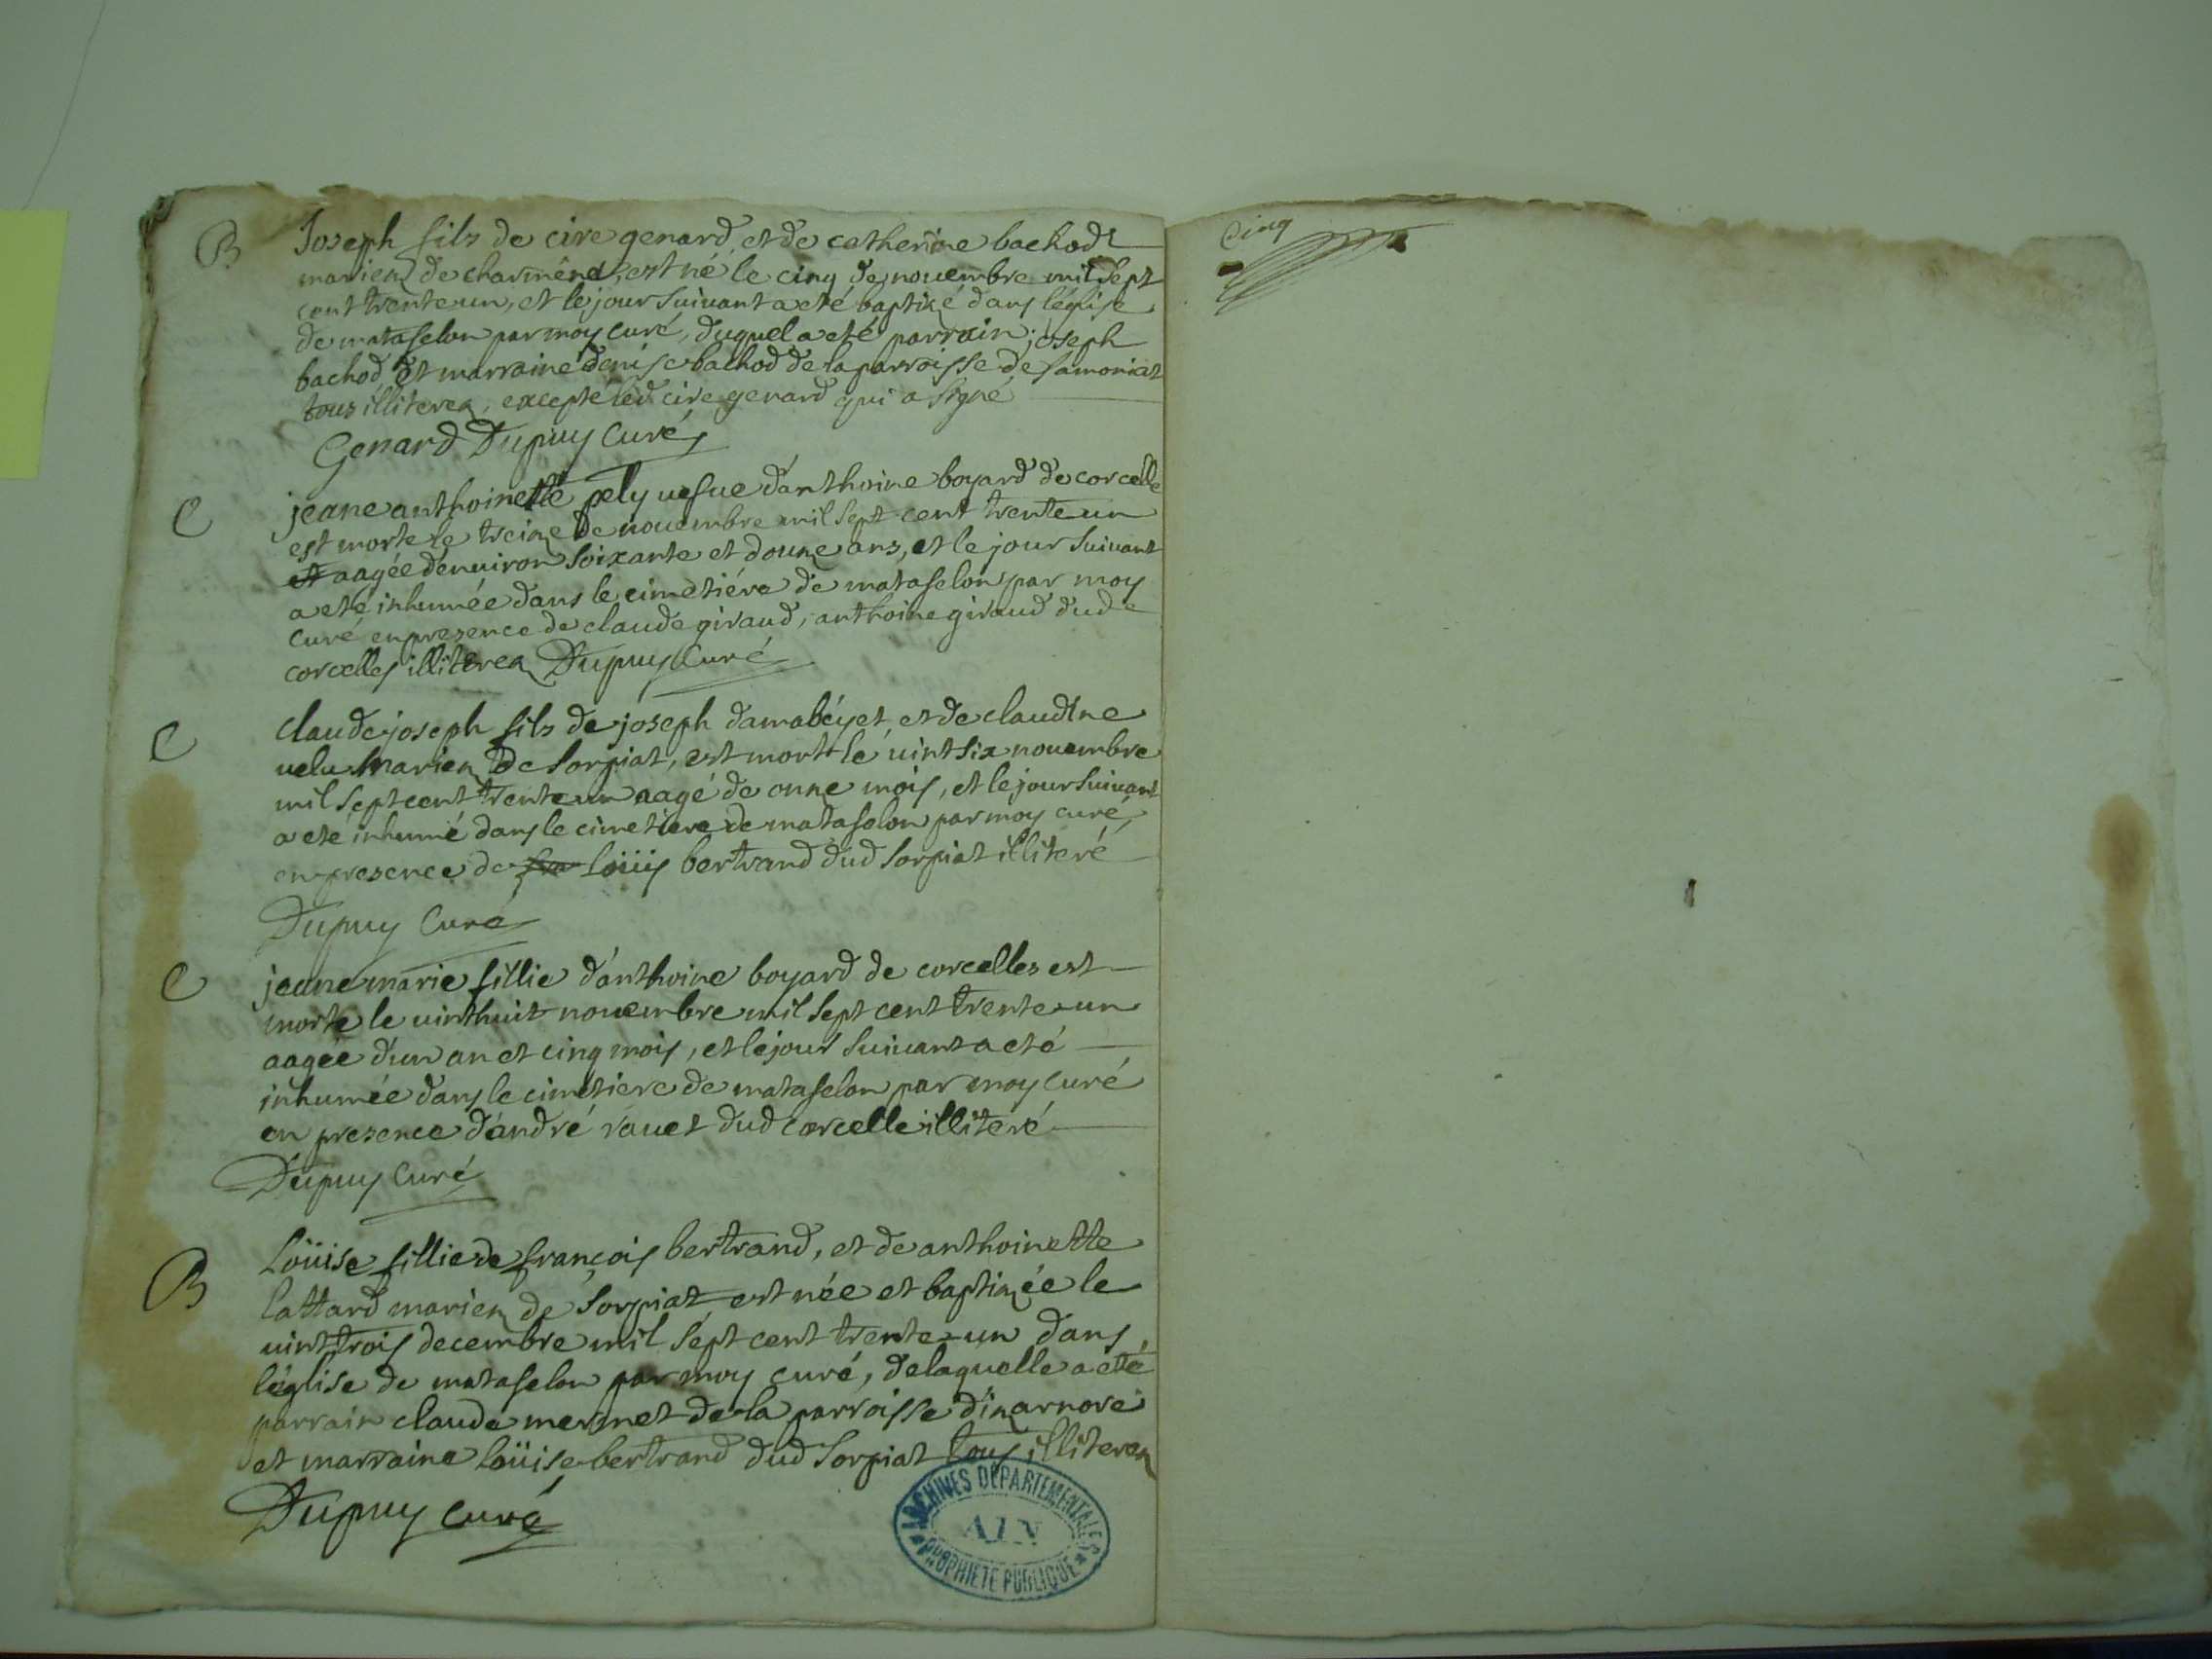 B
Joseph fils de cire genard, et de catherine bachod
mariez de charmêna, est né le cinq de nouembre mil sept
cent trente un, et le jour suiuant a eté baptizé dans léglise
de mataselon par moy curé, duquel a eté parrain joseph
bachod et marraine denise bachod de la parroisse de samoniat
tous illiterez, excepté led cire genard qui a signé
Genard Dupuy Curé
C
jeane anthoinette pely uefue d'anthoine boyard de corcelle
est morte le treize de nouembre mil sept cent trente un
et aagée d'enuiron soixante et douze ans, et le jour suiuant
a eté inhumée dans le cimetiére de mataselon par moy
curé en presence de claude giraud, anthoine giraud dud
corcelles illiterez Dupuy Curé
C
claude joseph fils de joseph damabéyet, et de claudine
uelu mariez de sorpiat, est mort le uint six nouembre
mil sept cent trente un aagé de onze mois, et le jour suiuant
a eté inhumé dans le cimetiere de mataselon par moy curé,
en presence de fra loüis bertrand dud sorpiat illiteré
Dupuy Curé
C
jeane marie fillie d'anthoine boyard de corcelles est
morte le uinthuit nouembre mil sept cent trente un
aagée d'un an et cinq mois, et le jour suiuant a eté
inhumée dans le cimetiere de mataselon par moy curé
en presence d'andré rauet dud corcelle illiteré
Dupuy Curé
B
Loüise fillie de françois bertrand, et de anthoinette
lattard mariez de sorpiat est née et baptizée le
uint trois decembre mil sept cent trente un dans
léglise de mataselon par moy curé, de laquelle a eté
parrain claude mermet de la parroisse dizarnore
et marraine loüise bertrand dud sorpiat tous illiterez
Dupuy curé
ARCHIVES DÉPARTEMENTALES
AIN
PROPRIÉTÉ PUBLIQUE
Cinq